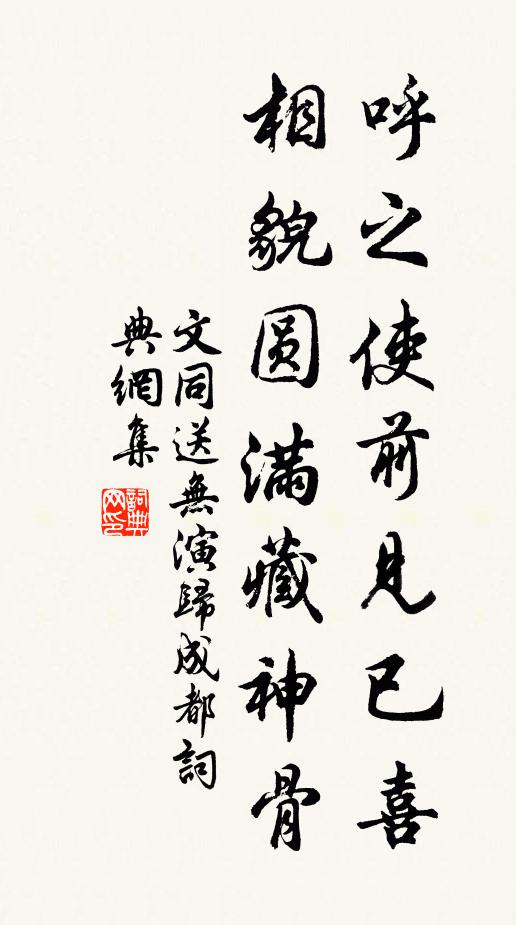 呼之使前見已喜
相貌圓滿藏神骨
文同送無演歸成都詞
典網集
詞典網印